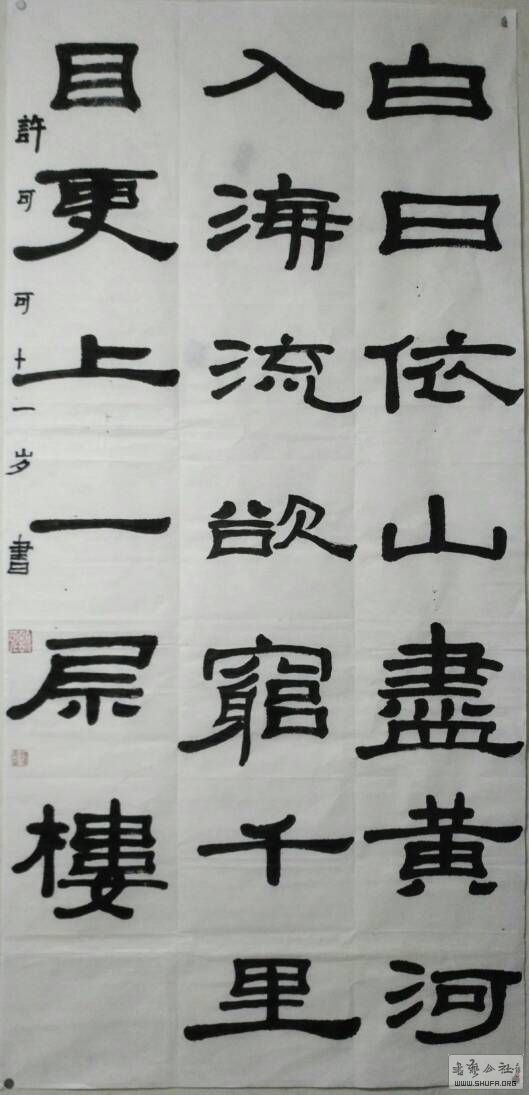 白日依山盡黄河
入海流欲窮千里
目更上一层樓
許可可十一岁書
書藝公社
WWW.SHUFA.ORG